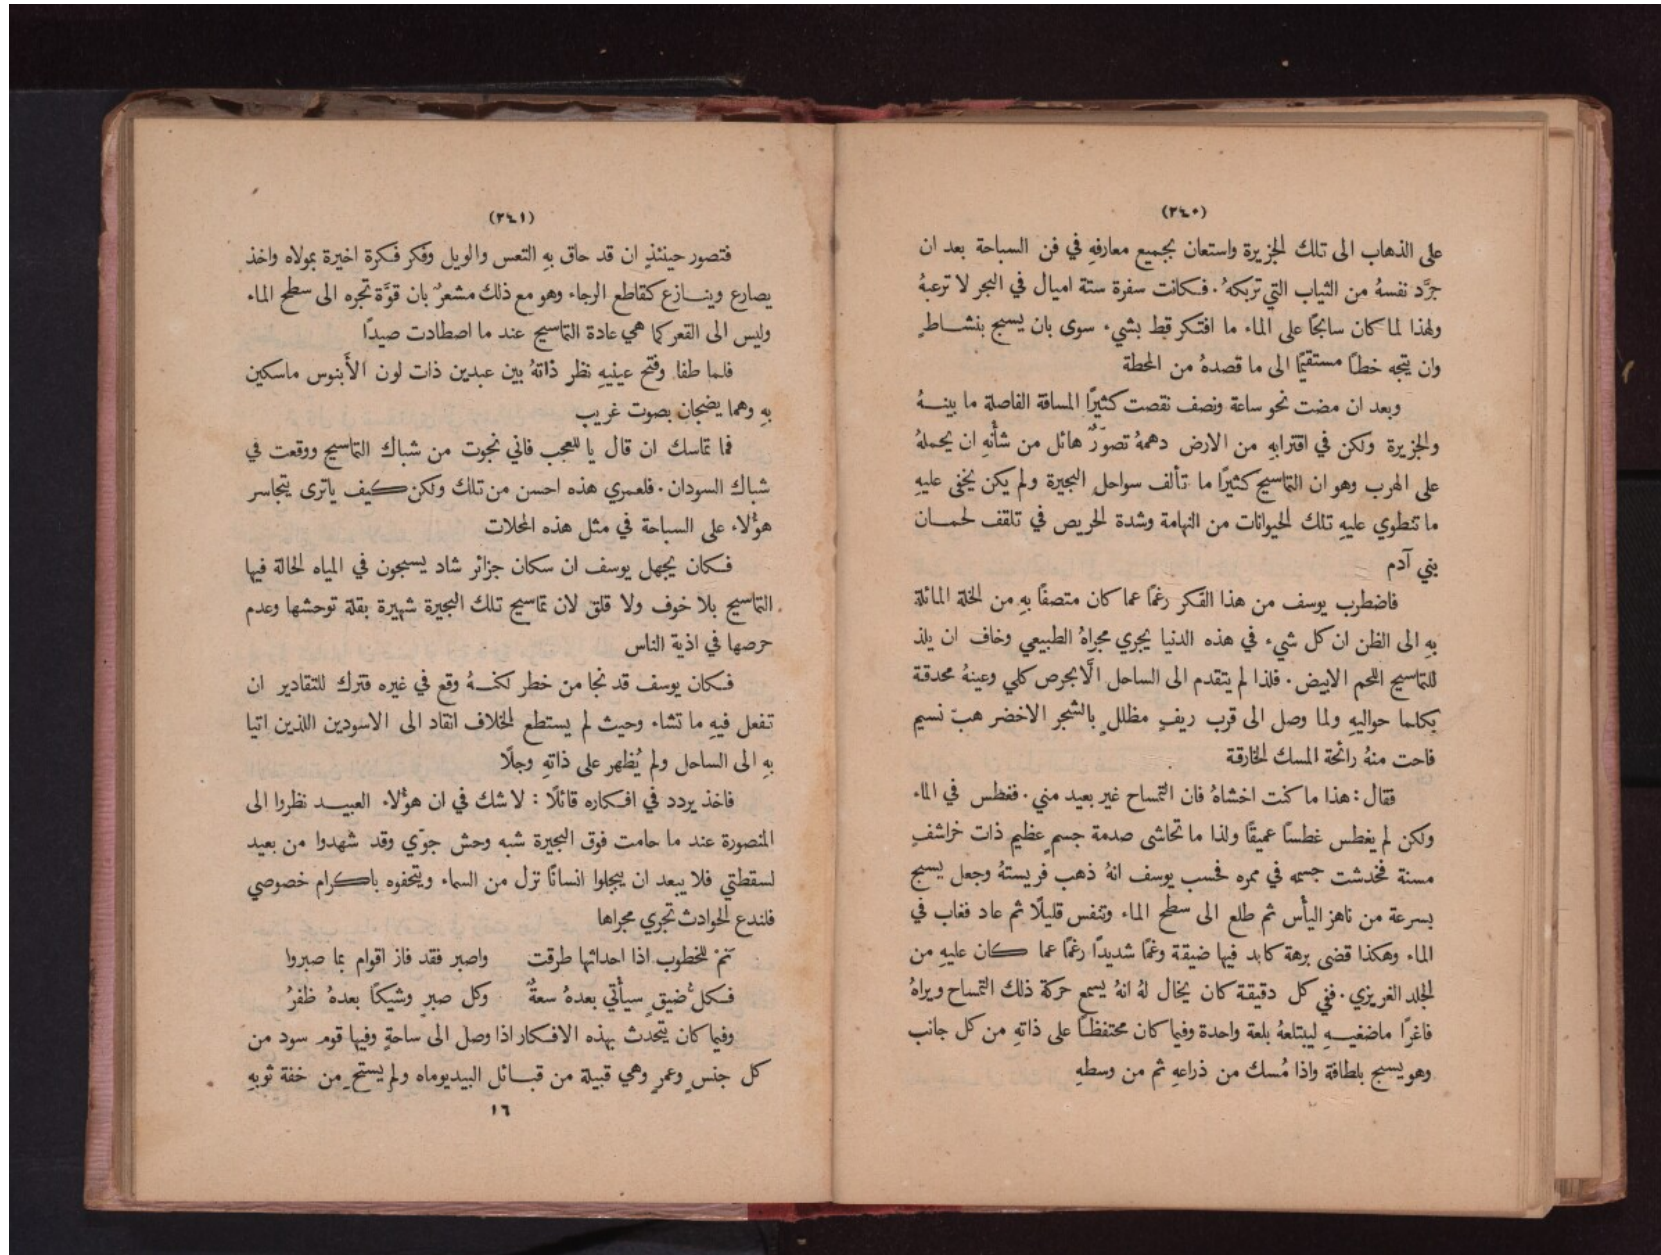 (٢٤٠)
على الذهاب الى تلك الجزيرة واستعان بجميع معارفهِ في فن السباحة بعد ان
جرَّد نفسهُ من الثياب التي تربكهُ. فكانت سفرة ستة اميال في البحر لا ترعبهُ
ولهذا لما كان سابحًا على الماء ما افتكر قط بشيء سوى بان يسبح بنشاطٍ
وان يتجه خطاً مستقيمًا الى ما قصدهُ من المحطة
وبعد ان مضت نحو ساعة ونصف نقصت كثيرًا المسافة الفاصلة ما بينهُ
والجزيرة ولكن في اقترابهِ من الارض دهمهُ تصوّرٌ هائل من شأنهِ ان يحملهُ
على الهرب وهو ان التماسيح كثيرًا ما تألف سواحل البحيرة ولم يكن يخفى عليهِ
ما تنطوي عليهِ تلك الحيوانات من النهامة وشدة الحريص في تلقف لحمان
بني آدم
فاضطرب يوسف من هذا الفكر رغمًا عما كان متصفًا بهِ من الخلة المائلة
بهِ الى الظن ان كل شيء في هذه الدنيا يجري مجراهُ الطبيعي وخاف ان يلذ
للتماسيح اللحم الابيض. فلذا لم يتقدم الى الساحل الَّا بحرص كلي وعينهُ محدقة
بكلما حواليهِ ولما وصل الى قرب ريفٍ مظللٍ بالشجر الاخضر هبّ نسيم
فاحت منهُ رائحة المسك الخارقة
فقال: هذا ما كنت اخشاهُ فان التمساح غير بعيد مني. فغطس في الماء
ولكن لم يغطس غطسًا عميقًا ولذا ما تحاشى صدمة جسمٍ عظيم ذات خراشفٍ
مسنة فخدشت جسمه في ممره فحسب يوسف انهُ ذهب فريستهُ وجعل يسبح
بسرعة من ناهز اليأس ثم طلع الى سطح الماء وتنفس قليلًا ثم عاد فغاب في
الماء وهكذا قضى برهة كابد فيها ضيقة وغمًا شديدًا رغمًا عما كان عليهِ من
الجلد الغريزي. ففي كل دقيقة كان يخال لهُ انهُ يسمع حركة ذلك التمساح ويراهُ
فاغرًا ماضغيهِ ليبتلعهُ بلعة واحدة وفيما كان محتفظًا على ذاتهِ من كل جانب
وهو يسبح بلطافة واذا مُسك من ذراعهِ ثم من وسطهِ
(٢٤١)
فتصور حينئذٍ ان قد حاق بهِ التعس والويل وفكر فكرة اخيرة بمولاه واخذ
يصارع وينازع كقاطع الرجاء وهو مع ذلك مشعرٌ بان قوَّة تجره الى سطح الماء
وليس الى القعر كما هي عادة التماسيح عند ما اصطادت صيدًا
فلما طفا وفتح عينيهِ نظر ذاتهُ بين عبدين ذات لون الأَبنوس ماسكين
بهِ وهما يضجان بصوت غريب
فما تماسك ان قال يا للعجب فاني نجوت من شباك التماسيح ووقعت في
شباك السودان. فلعمري هذه احسن من تلك ولكن كيف ياترى يتجاسر
هؤلاء على السباحة في مثل هذه المحلات
فكان يجهل يوسف ان سكان جزائر شاد يسبحون في المياه الحالة فيها
التماسيح بلا خوف ولا قلق لان تماسيح تلك البحيرة شهيرة بقلة توحشها وعدم
حرصها في اذية الناس
فكان يوسف قد نجا من خطر لكنهُ وقع في غيره فترك للتقادير ان
تفعل فيهِ ما تشاء وحيث لم يستطع الخلاف انقاد الى الاسودين اللذين اتيا
بهِ الى الساحل ولم يُظهر على ذاتهِ وجلًا
فاخذ يردد في افكاره قائلًا: لا شك في ان هؤلاء العبيد نظروا الى
المنصورة عند ما حامت فوق البحيرة شبه وحش جوّي وقد شهدوا من بعيد
لسقطتي فلا يبعد ان يبجلوا انسانًا نزل من السماء ويتحفوه باكرام خصوصي
فلندع الحوادث تجري مجراها
نَمْ للخطوب اذا احداثها طرقت واصبر فقد فاز اقوام بما صبروا
فكلُّ ضيقٍ سيأتي بعدهُ سعةٌ وكل صبرٍ وشيكًا بعدهُ ظفرُ
وفيما كان يتحدث بهذه الافكار اذا وصل الى ساحةٍ وفيها قوم سود من
كل جنسٍ وعمرٍ وهي قبيلة من قبائل البيديوماه ولم يستحِ من خفة ثوبهِ
١٦